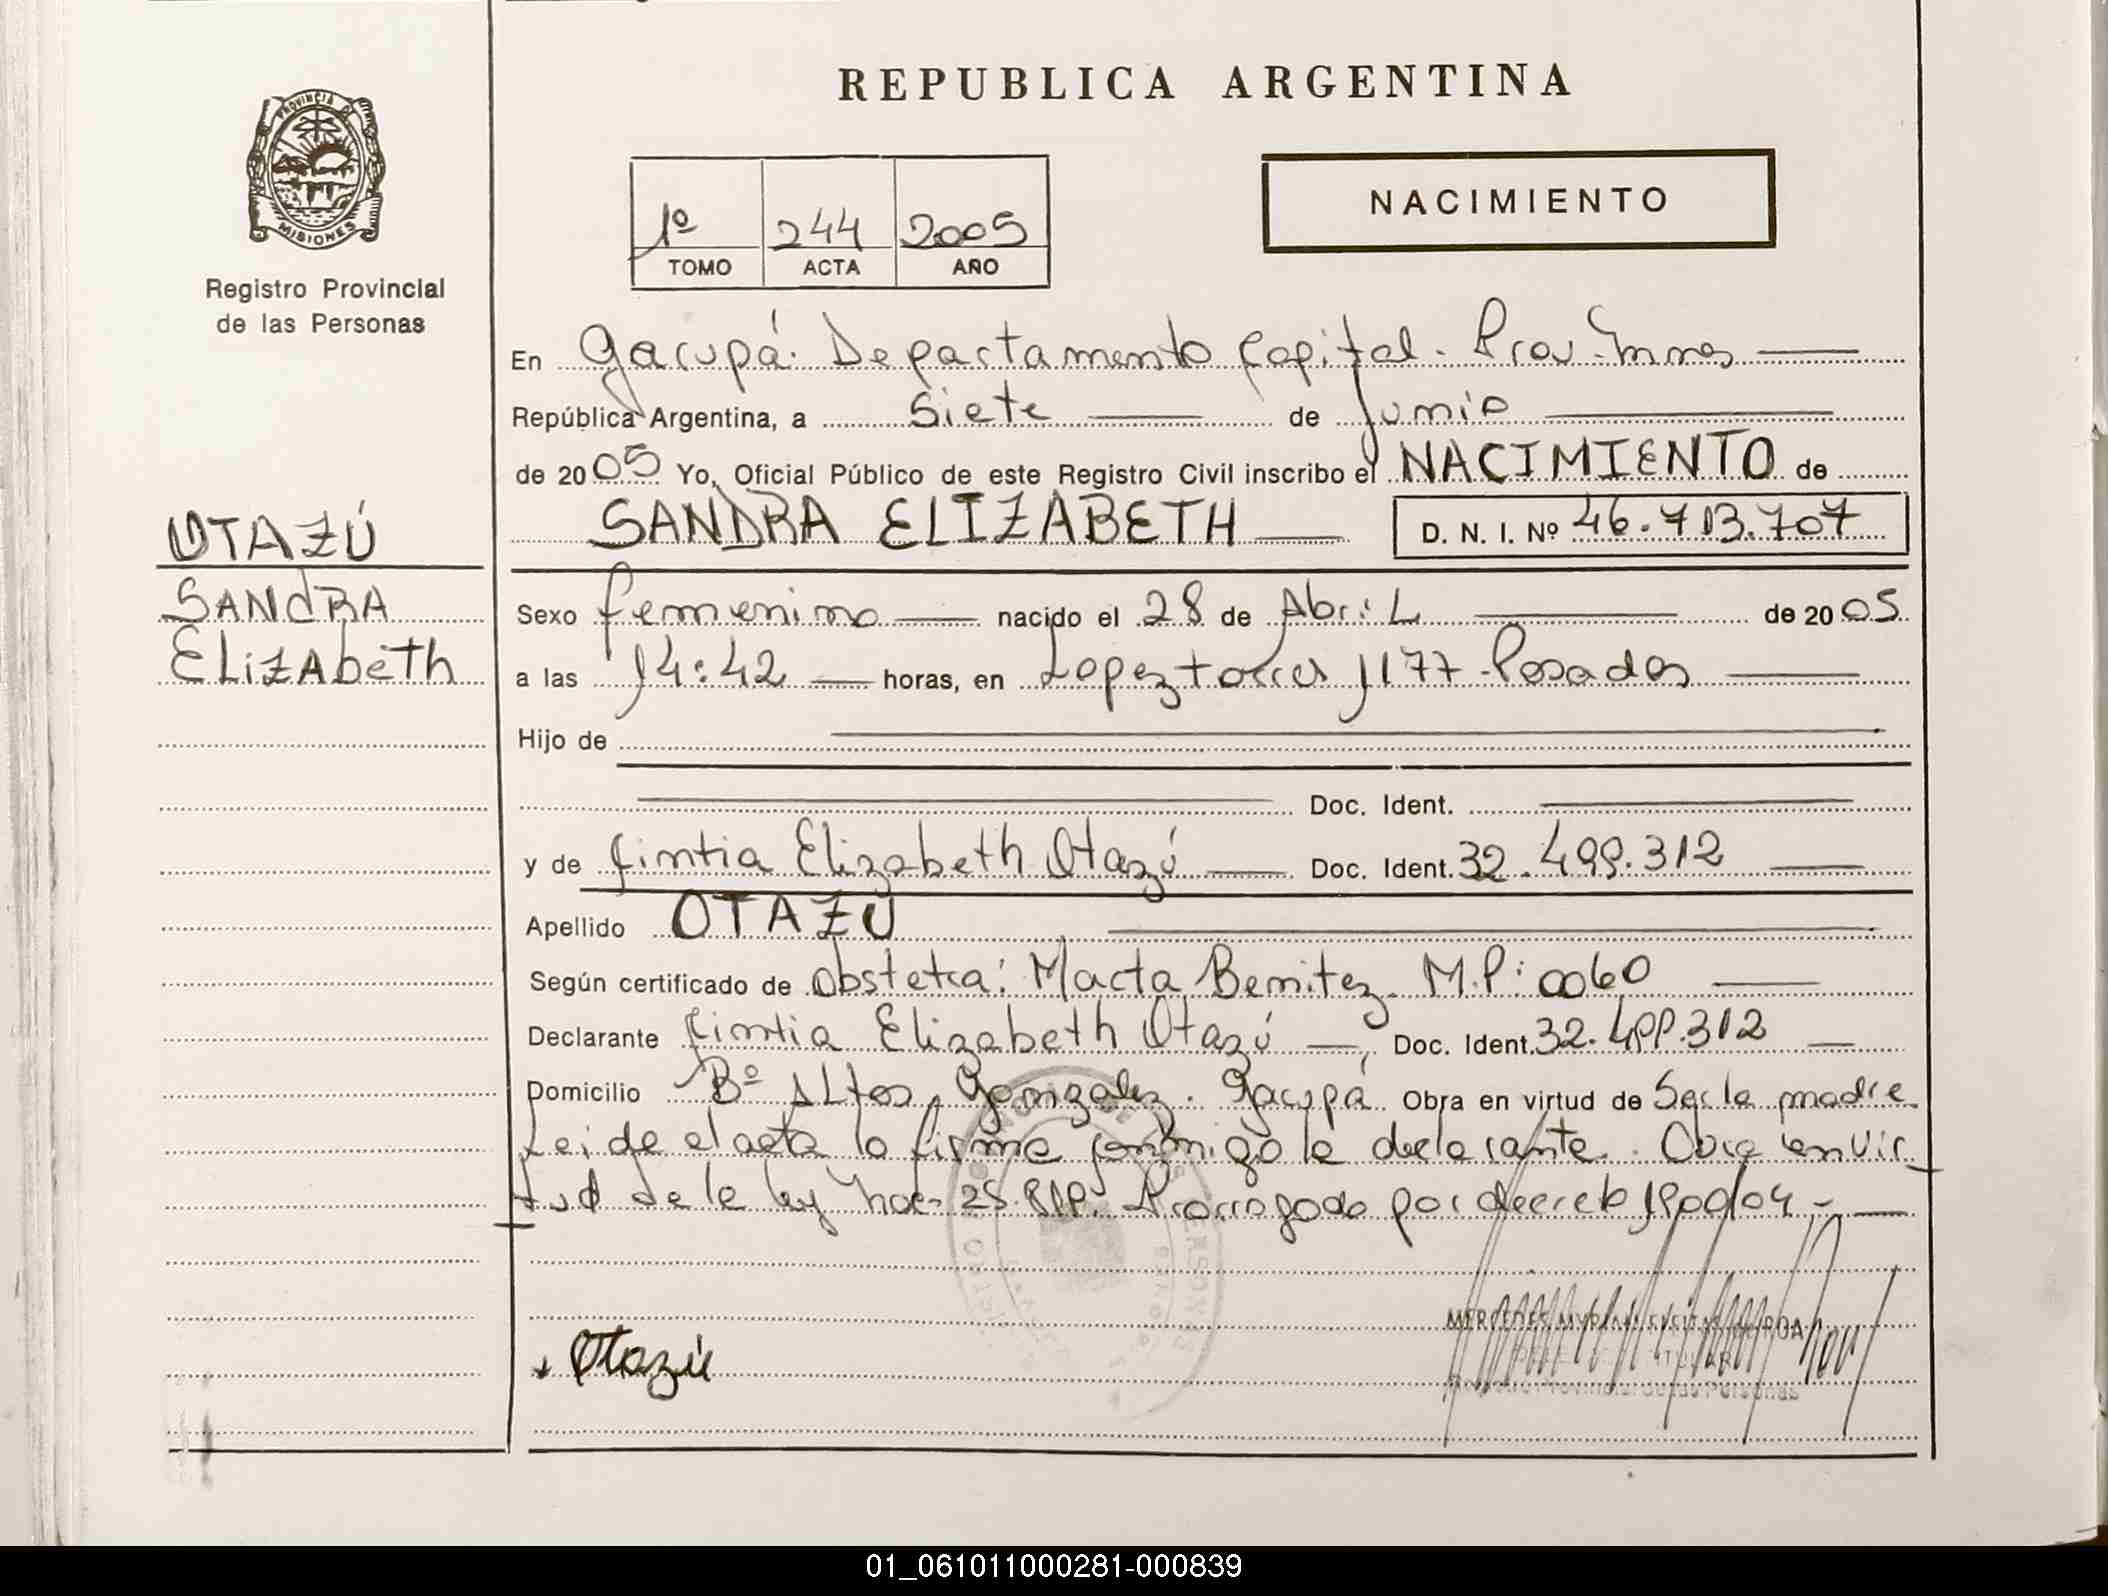 REPUBLICA ARGENTINA
PROVINCIA DE
MISIONES
Registro Provincial
de las Personas
1º 244 2005
TOMO ACTA AÑO
NACIMIENTO
En Garupá. Departamento Capital. Prov. Mnes
República Argentina, a Siete de Junio
de 2005 Yo, Oficial Público de este Registro Civil inscribo el NACIMIENTO de
SANDRA ELIZABETH D. N. I. Nº 46.713.707
OTAZÚ
SANdRA
ELiZAbeTh
Sexo femenino nacido el 28 de AbriL de 2005
a las 14:42 horas, en Lopez torres 1177 - Posadas
Hijo de
Doc. Ident.
y de Cintia Elizabeth Otazú Doc. Ident. 32.499.312
Apellido OTAZÚ
Según certificado de obstetra: Marta Benitez. M.P: 0060
Declarante Cintia Elizabeth Otazú, Doc. Ident. 32.499.312
Domicilio Bº ALtos Gonzalez. Garupá Obra en virtud de Ser la madre
Leida el acta la firma conmigo la declarante. Obra en vir
tud de la ley 25. Prorrogada por decreto 1900/04 -
Otazú
MERCEDES MYRIAM
TITULAR
Registro Provincial de las Personas
01_061011000281-000839